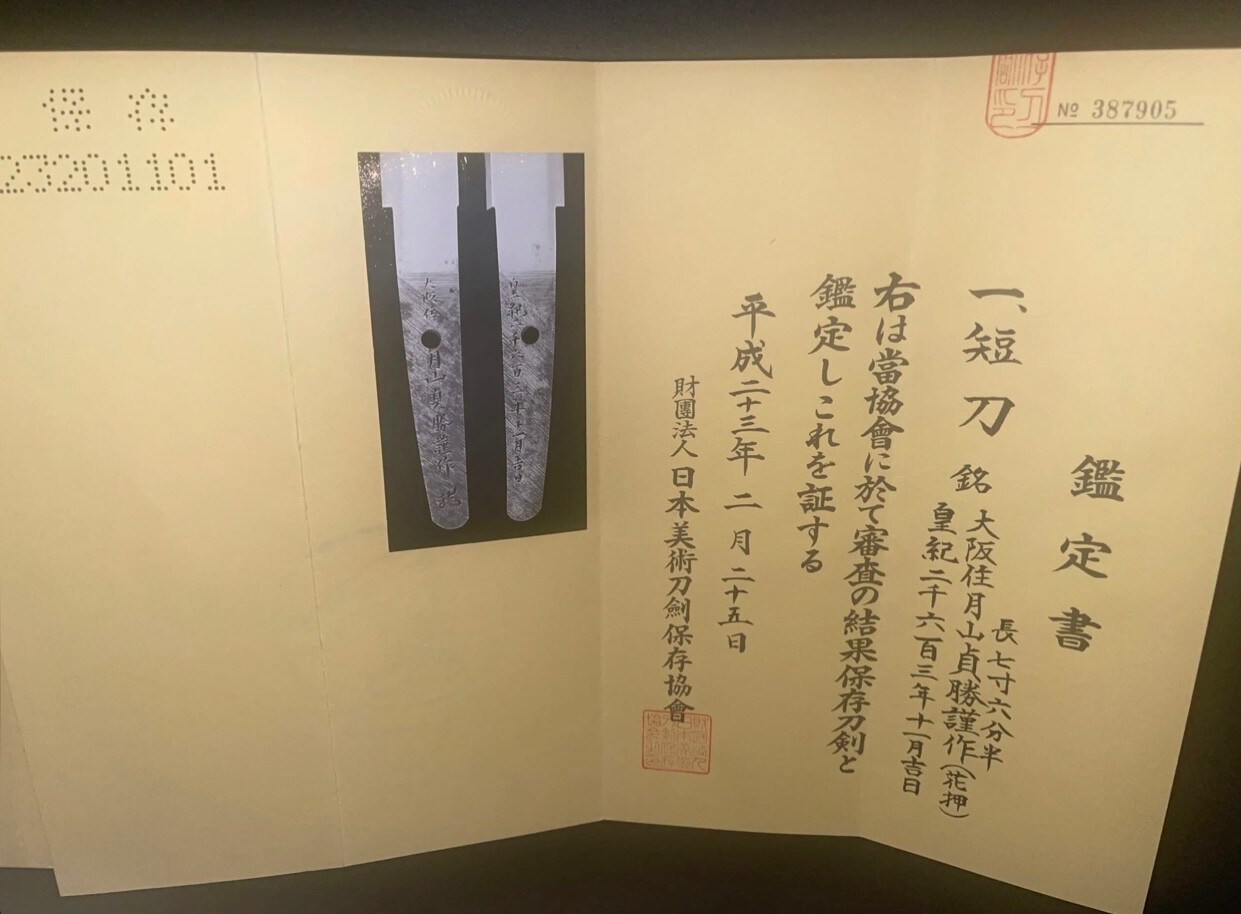 № 387905
鑑定書
一、短刀
長七寸六分半
銘 大阪住月山貞勝謹作(花押)
皇紀二千六百三年十一月吉日
右は當協會に於て審査の結果保存刀剣と
鑑定しこれを証する
平成二十三年二月二十五日
財團法人日本美術刀劍保存協會
大阪住月山貞勝謹作
皇紀二千六百三年十一月吉日
保存
23201101